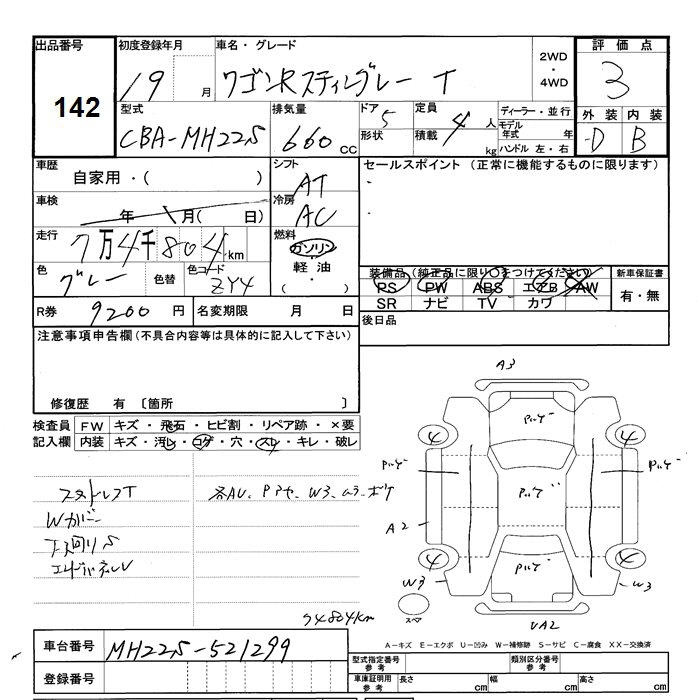 出品番号 初度登録年月 車名・グレード 2WD・4WD 評価点
142 19 月 ワゴンRスティングレー T 3
型式 排気量 ドア 5 定員 4 人 ディーラー・並行 外装 内装
CBA-MH22S 660 CC 形状 積載 kg モデル年式 年 D B
ハンドル 左・右
車歴 シフト セールスポイント (正常に機能するものに限ります)
自家用・( ) AT
車検 年 月( 日) 冷房 AC
走行 7万4千804km 燃料 ガソリン 軽油・( )
色 グレー 色替 色コード ZY4
装備品 (純正品に限り○をつけてください) 新車保証書
PS PW ABS エアB AW 有・無
SR ナビ TV カワ
R券 9200 円 名変期限 月 日 後日品
注意事項申告欄 (不具合内容等は具体的に記入して下さい)
修復歴 有 〔箇所 〕
検査員 FW キズ・飛石・ヒビ割・リペア跡・×要
記入欄 内装 キズ・汚れ・コゲ・穴・スレ・キレ・破レ
A3
4 4
A2
4 4
W3 W3
VA2
74804km
A-キズ E-エクボ U-凹み W-補修跡 S-サビ C-腐食 XX-交換済
車台番号 MH22S-521299
登録番号
型式指定番号 参考 類別区分番号 参考
車庫証明用 参考 長さ cm 幅 cm 高さ cm